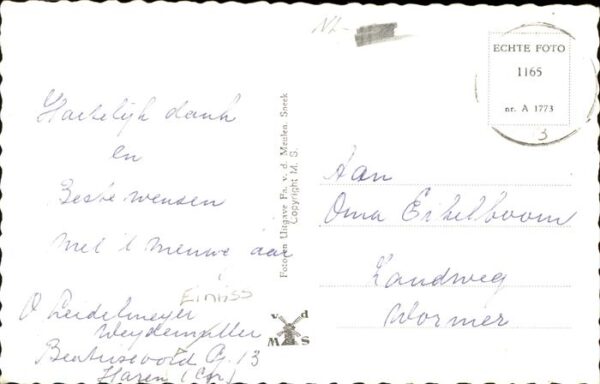 NL-
Hartelijk dank
en
Beste wensen
met 't nieuwe jaar
Einiss
O Zeidelmeyer
Weydemuller
G. 13
Haren (Gn)
Fotogr en Uitgave Fa. v. d. Meulen Sneek
Copyright M. S.
v d
M S
ECHTE FOTO
1165
nr. A 1773
3
Aan
Oma Eikelboom
Zandweg
Wormer